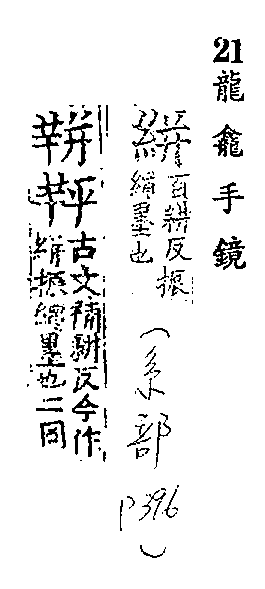 21龍龕手鏡
絣百耕反振
繩墨也
(糸部
P396)
古文補耕反今作
絣振繩墨也二同